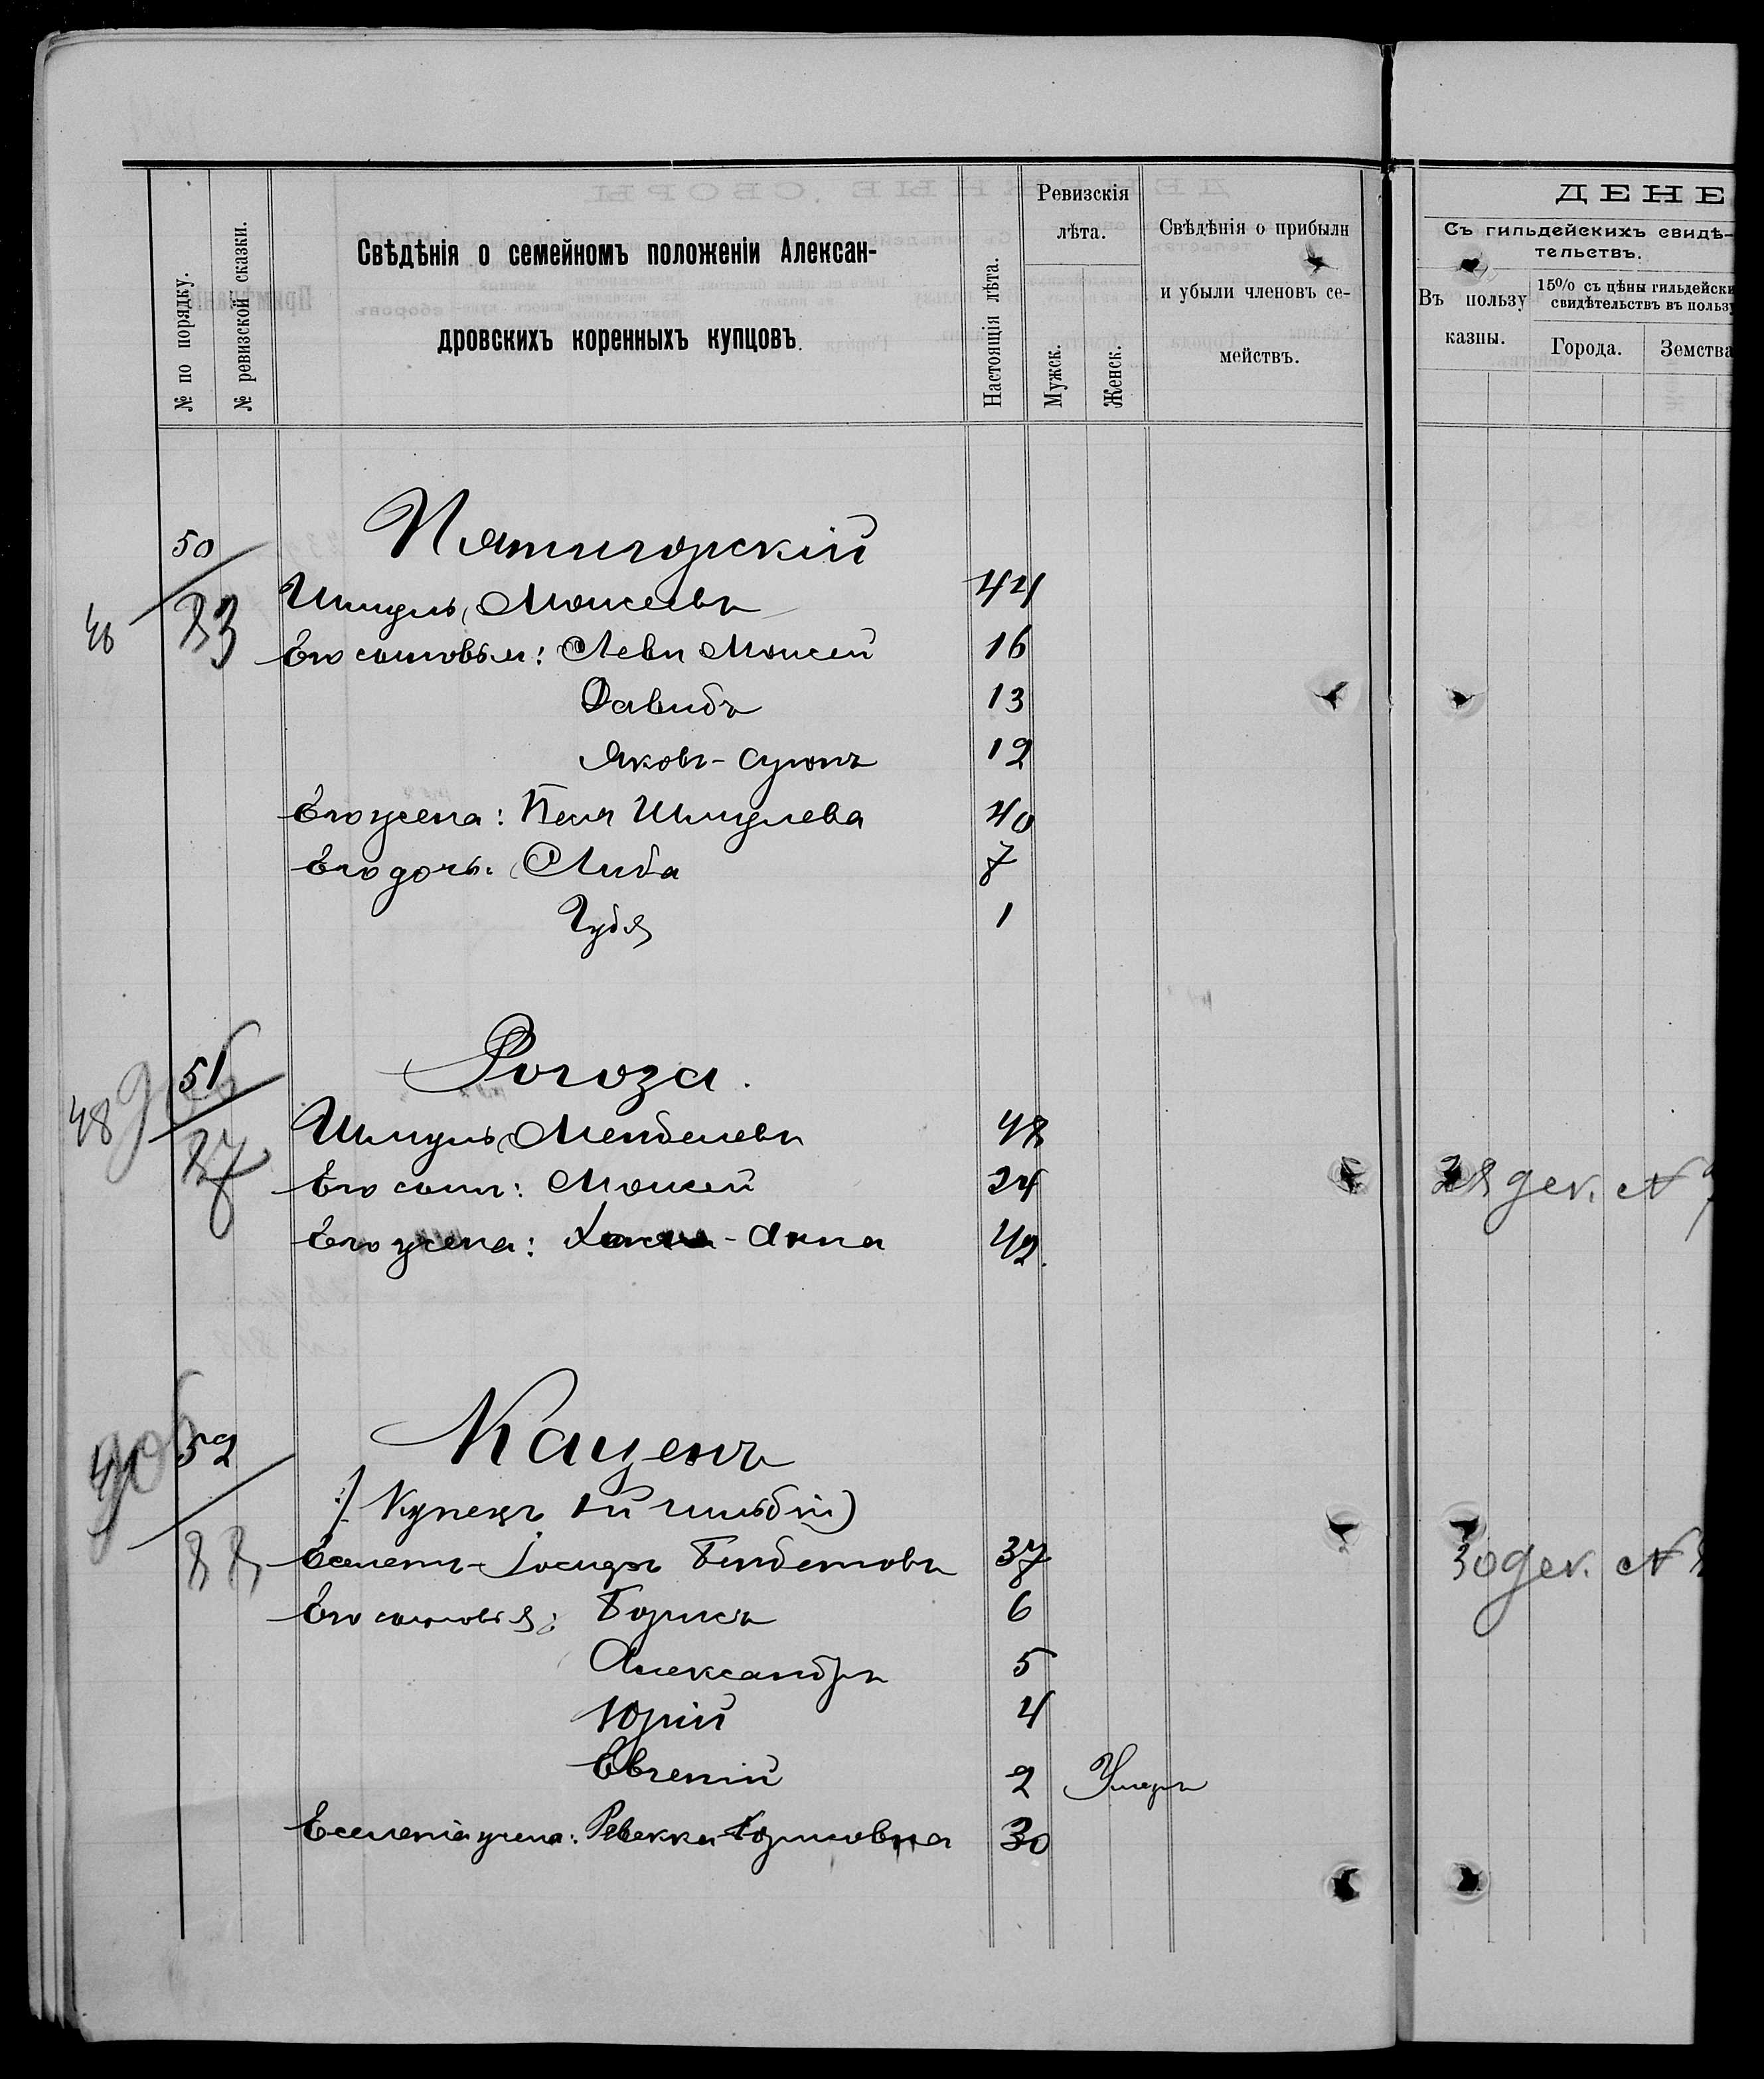 ДЕНЕ
Съ гильдейскихъ свидѣ-
тельствъ.
Въ пользу
казны.
15% съ цѣны гильдейски
свидѣтельствъ въ пользу
Города.
Земства
№ по порядку.
№ ревизской сказки.
Свѣдѣнія о семейномъ положеніи Алексан-
дровскихъ коренныхъ купцовъ.
Настоящія лѣта.
Ревизскія
лѣта.
Мужск.
Женск.
Свѣдѣнія о прибыли
и убыли членовъ се-
мействъ.
50 Пятигорскій
46 83 Шмуль Моисеевъ 44
Его сыновья: Леви Моисей 16
Давидъ 13
Яковъ- 12
Его жена: Песя Шмулева 40
Его дочь: Либа 7
1
51 Рогоза.
48 87 Шмуль Менделевъ 48
Его сынъ: Моисей 24 дек. №
Его жена: -Анна 42.
52 Каценъ
/ Купецъ 1й гильдіи)
88 Іосифъ 37 30 дек. №
Его сыновья: Борисъ 6
Александръ 5
Юрій 4
Евгеній 2 Умеръ
жена: Ревекка Борисовна 30